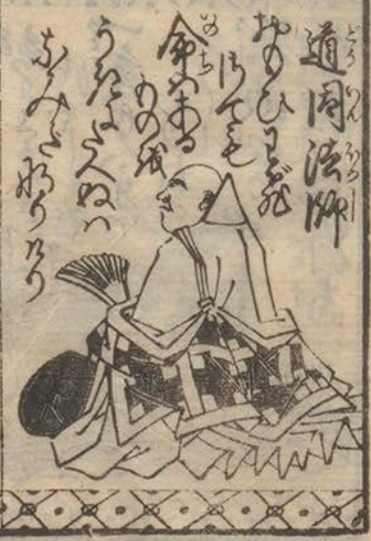 道因法師
おもひわび
さても
命はある
ものを
うきにたへぬハ
なみだなりけり